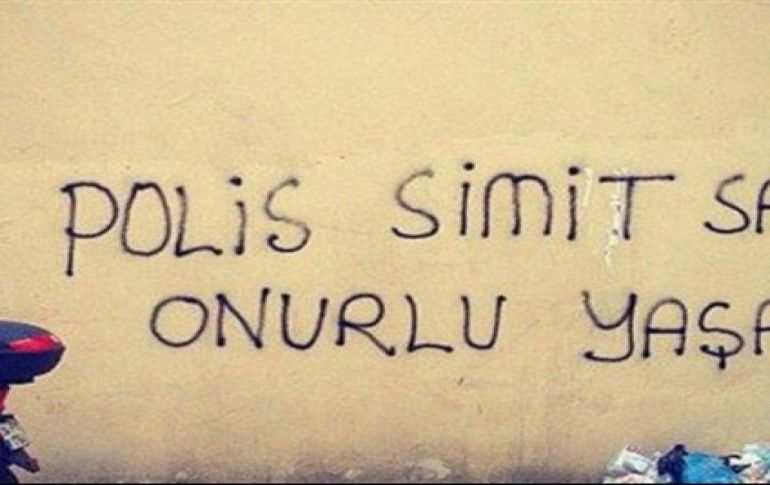 POLİS SİMİT SA
ONURLU YAŞA